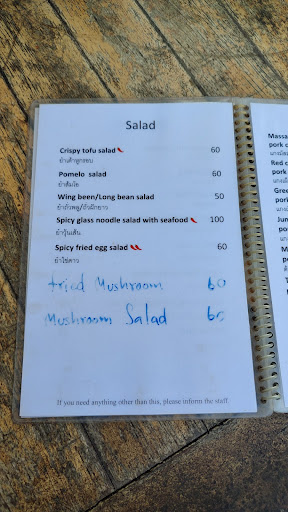 Salad
Crispy tofu salad 60
ยำเต้าหู้กรอบ
Pomelo salad 60
ยำส้มโอ
Wing been/Long bean salad 50
ยำถั่วพลู/ถั่วฝักยาว
Spicy glass noodle salad with seafood 100
ยำวุ้นเส้น
Spicy fried egg salad 60
ยำไข่ดาว
fried Mushroom 60
Mushroom Salad 60
If you need anything other than this, please inform the staff
Massa
pork c
Red c
pork
Gree
pork
Jun